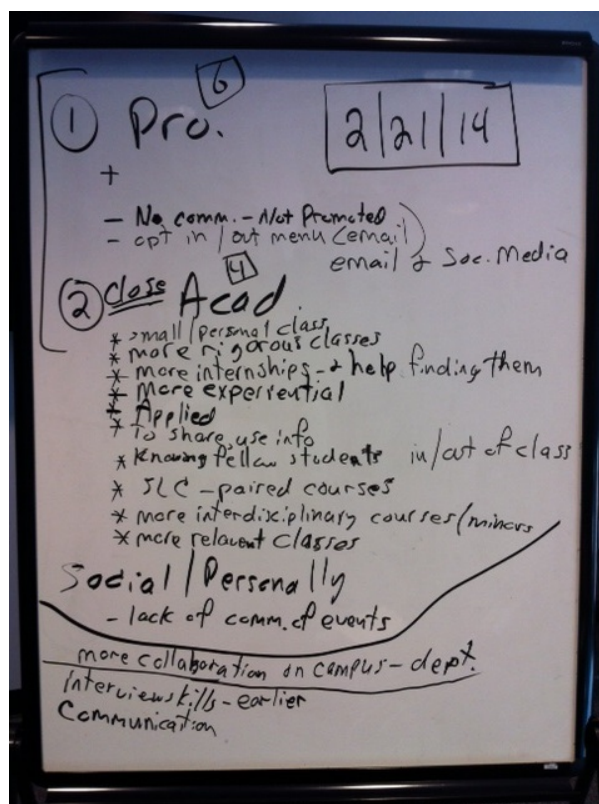 6
① Pro.
2/21/14
+
- No comm. - Not Promoted
- opt in / out menu (email)
email & Soc. Media
4
② close Acad.
* small/personal class
* more rigorous classes
* more internships - & help finding them
* More experiential
* Applied
* To share, use info
* Knowing fellow students in/out of class
* SLC - paired courses
* more interdisciplinary courses/minors
* more relavent classes
Social/Personally
- lack of comm. of events
more collaboration on campus - dept.
Interview skills - earlier
Communication